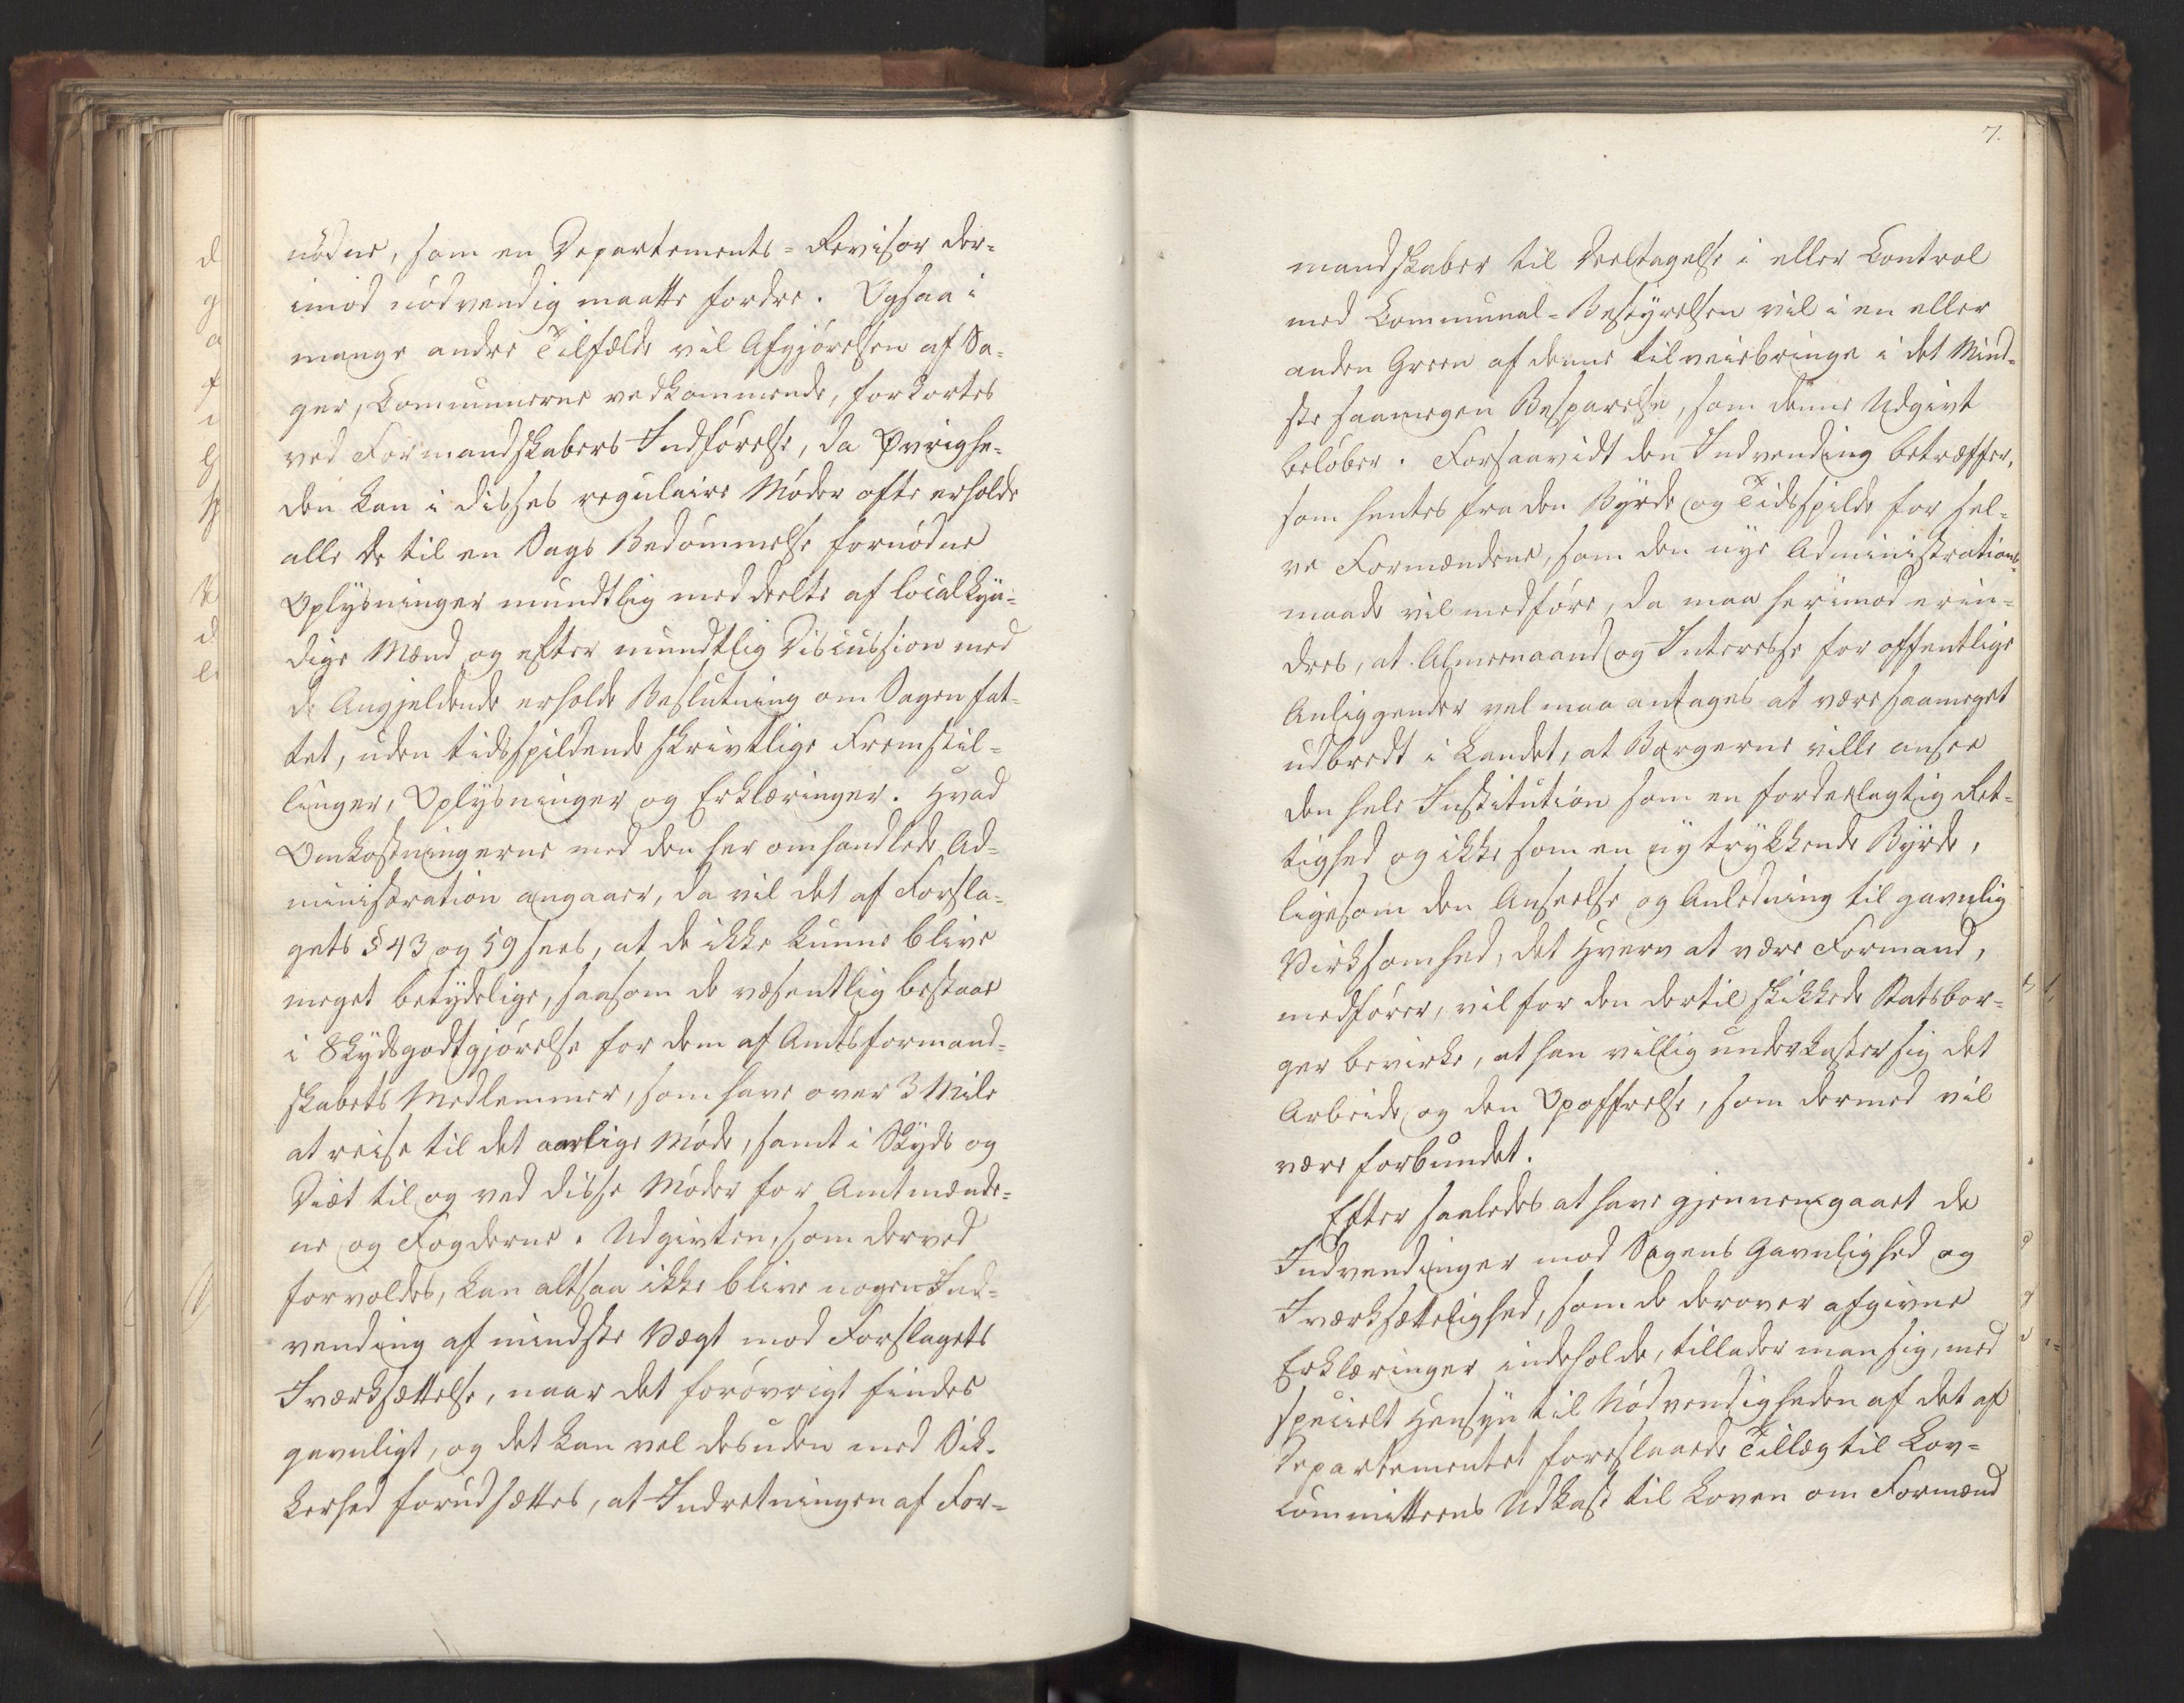 nødne, som en Departements-Revisor der-
imod nødvendig maatte fordre. Ogsaa i
mange andre Tilfælde vil Afgjørelsen af Sa-
ger, Communerne vedkommende, forkortes
ved Formandskabers Indførelse, da Øvrighe-
den kan i disses regulaire Møder ofte erholde
alle de til en Sags Bedømmelse fornødne
Oplysninger mundtlig meddeelte af localkyn-
dige Mænd og efter mundtlig Discussion med
de Angjeldende erholde Beslutning om Sagen fat-
tet, uden tidsspildende skrivtlige Fremstil-
linger, Oplysninger og Erklæringer. Hvad
Omkostningerne med den her omhandlede Ad-
ministration angaaer, da vil det af Forsla-
gets § 43 og 59 sees, at de ikke kunne blive
meget betydelige, saasom de væsentlig bestaae
i Skydsgodtgjørelse for dem af Amtsformand-
skabets Medlemmer, som have over 3 Mile
at reise til det aarlige Møde, samt i Skyds og
Diæt til og ved disse Møder for Amtmænde-
ne og Fogderne. Udgivten, som derved
forvoldes, kan altsaa ikke blive nogen Ind-
vending af mindste Vægt mod Forslagets
Iværksættelse, naar det forøvrigt findes
gavnligt, og det kan vel desuden med Sik-
kerhed forudsættes, at Indretningen af For-
7.
mandskaber til Deeltagelse i eller Control
med Communal-Bestyrelsen vil i en eller
anden Green af denne tilveiebringe i det Mind-
ste saamegen Besparelse, som denne Udgivt
beløber. Forsaavidt den Indvending betræffer,
som hentes fra den Byrde og Tidsspilde for sel-
ve Formændene, som den nye Administrations-
maade vil medføre, da maa herimod erin-
dres, at Almeenaand og Interesse for offentlige
Anliggender vel maa antages at være saameget
udbredt i Landet, at Borgerne ville ansee
den hele Institution som en fordeelagtig Ret-
tighed og ikke som en ny trykkende Byrde,
ligesom den Anseelse og Anledning til gavnlig
Virksomhed, det Hverv at være Formand,
medfører, vil for den dertil skikkede Statsbor-
ger bevirke, at han villig underkaster sig det
Arbeide og den Opoffrelse, som dermed vil
være forbundet.
Efter saaledes at have gjennemgaaet de
Indvendinger mod Sagens Gavnlighed og
Iværksættelighed, som de derover afgivne
Erklæringer indeholde, tillader man sig, med
specielt Hensyn til Nødvendigheden af det af
Departementet foreslaaede Tillæg til Lov-
committeens Udkast til Loven om Formænd